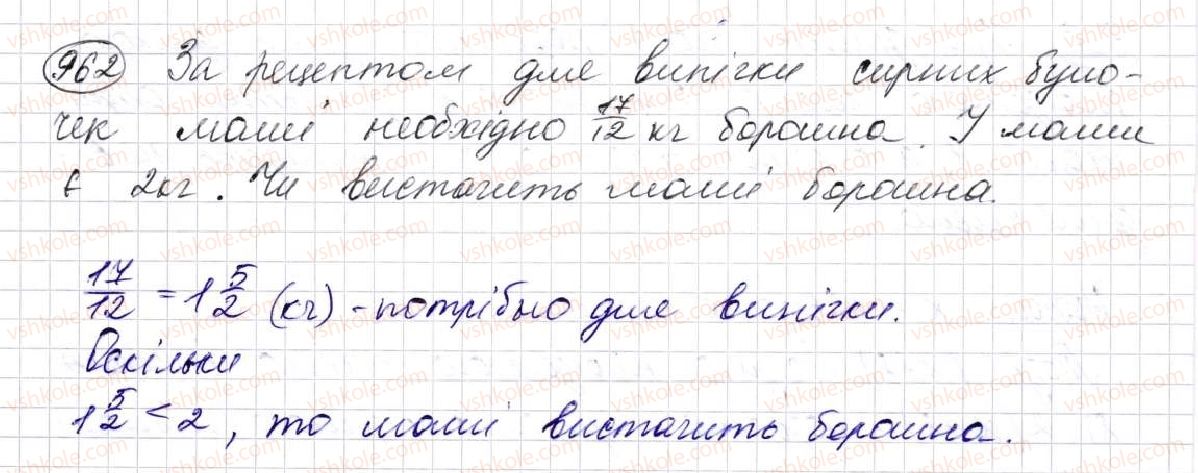 962 За рецептом для випічки сирних було-
чек мамі необхідно 17/12 кг борошна. У мами
є 2кг. Чи вистачить мамі борошна.
17/12 = 1 5/2 (кг) - потрібно для випічки.
Оскільки
1 5/2 < 2, то мамі вистачить борошна.